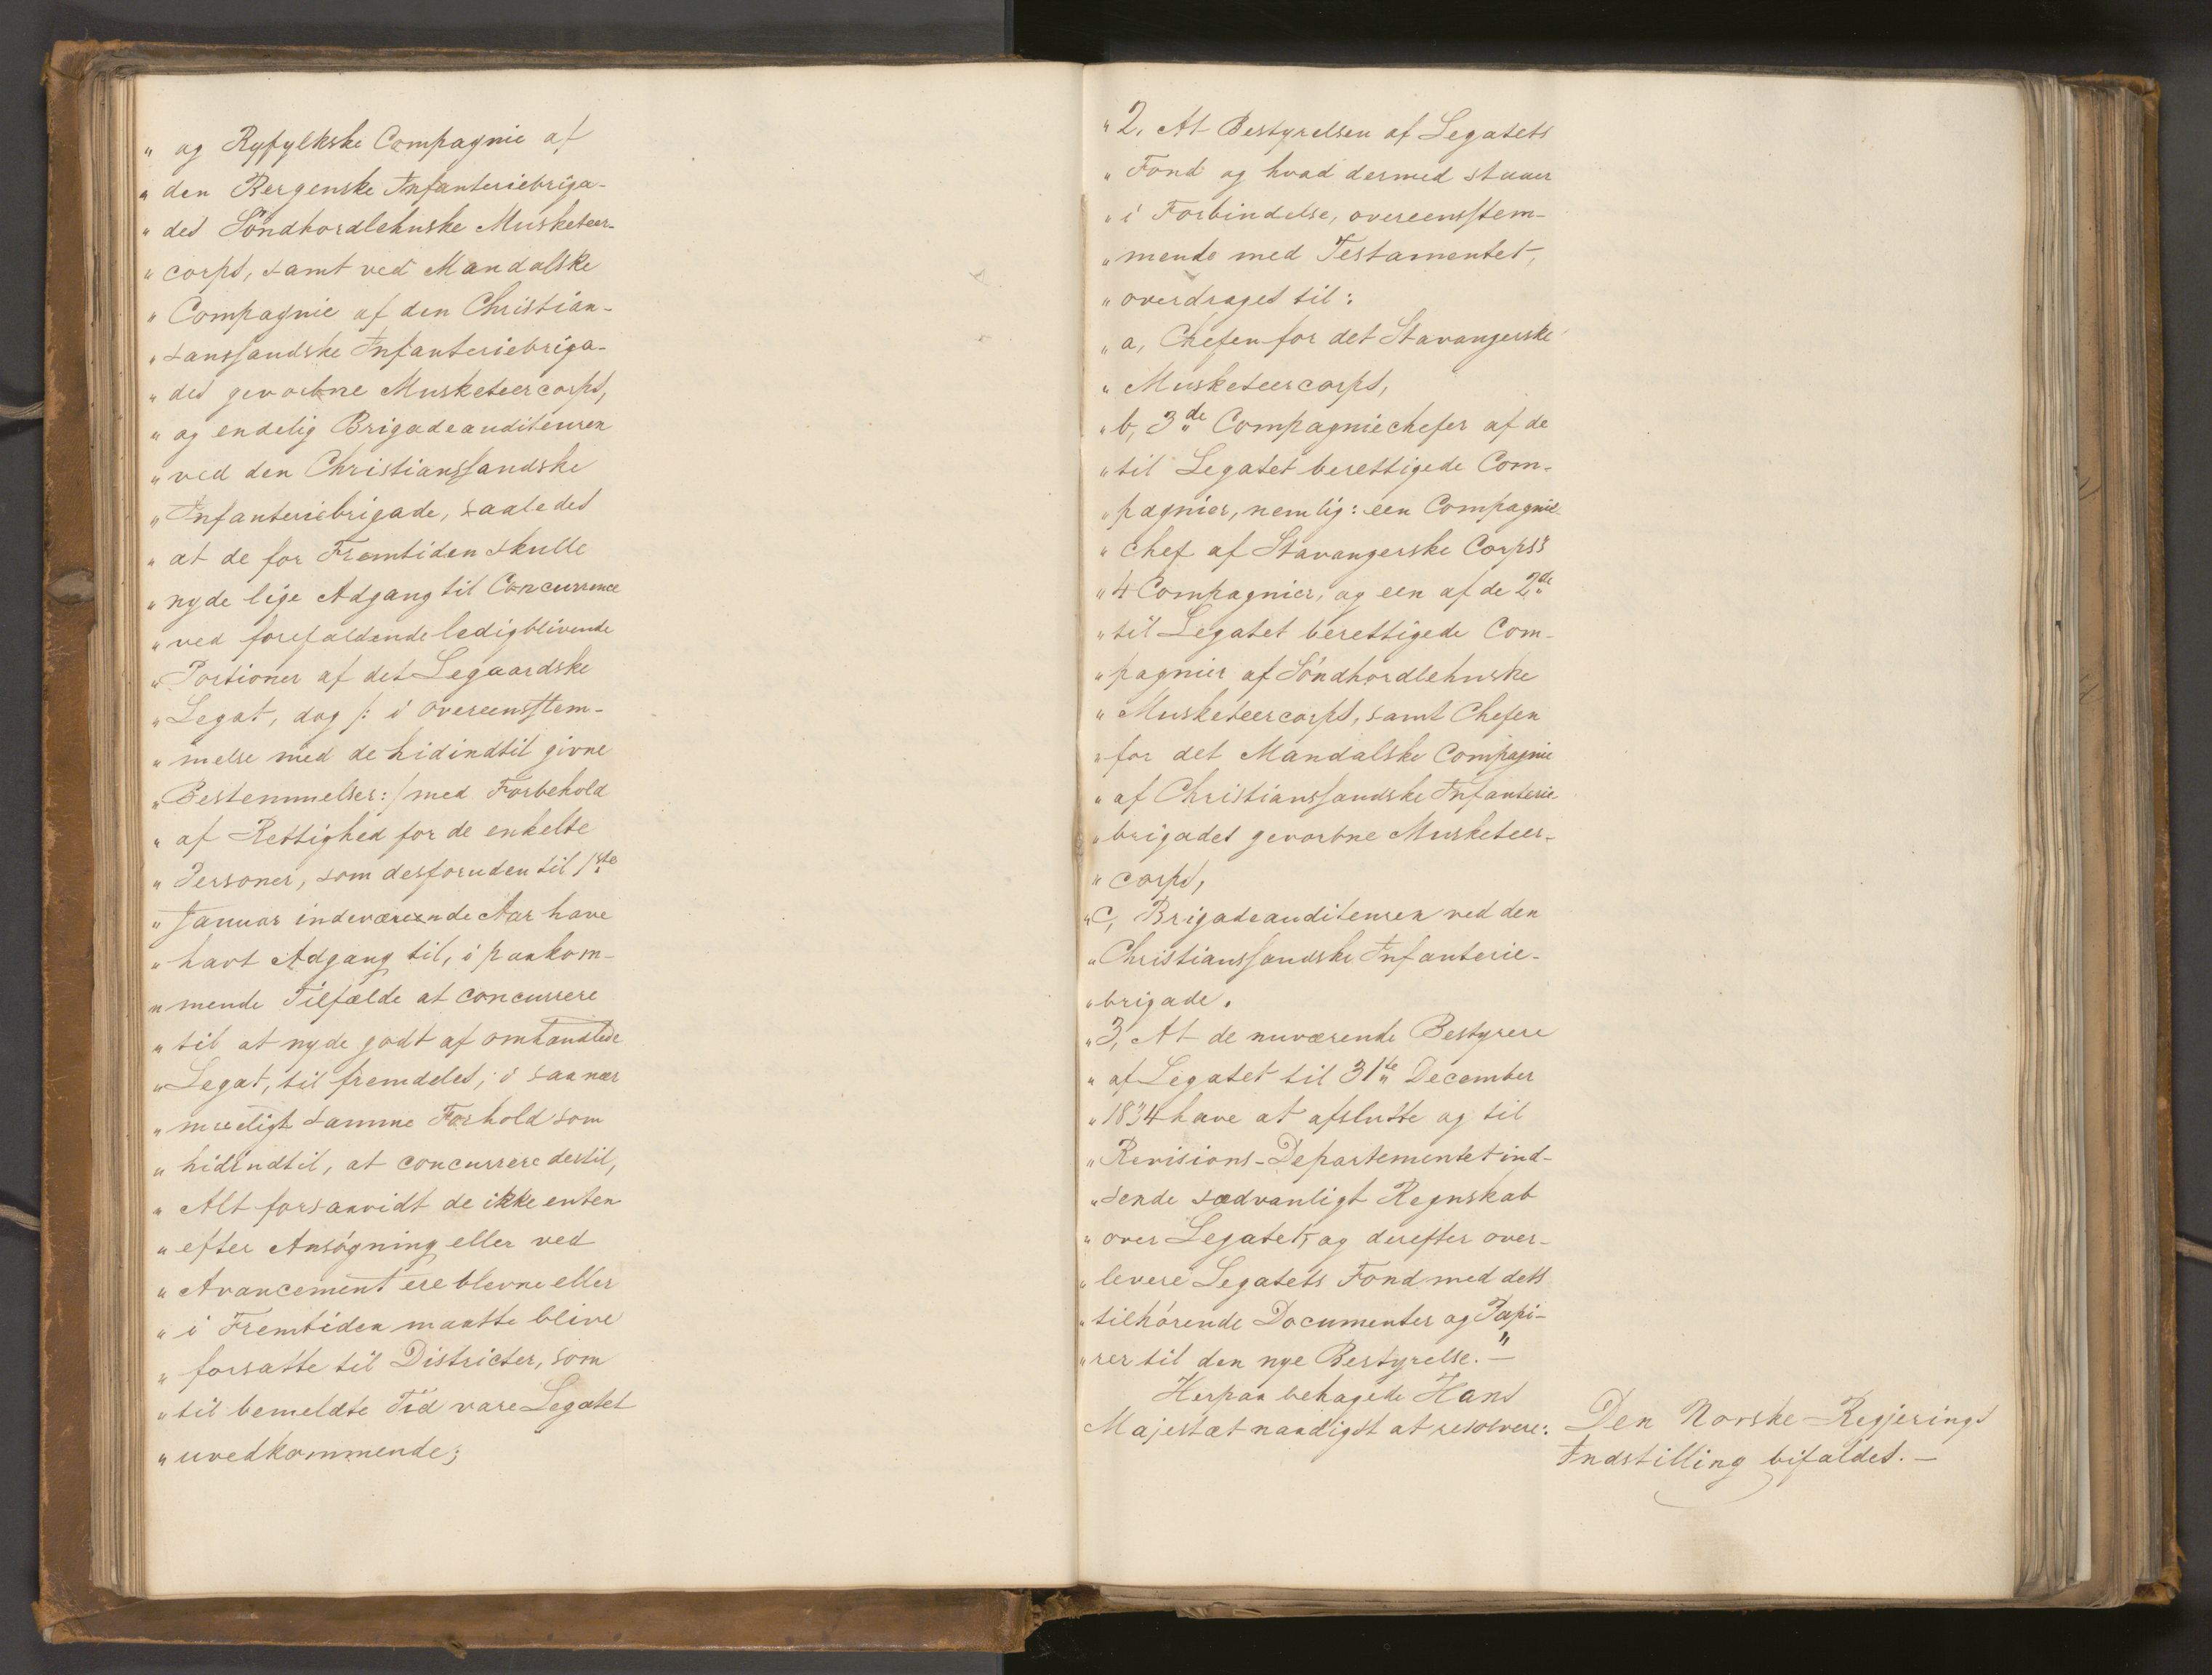 " og Ryfylkske Compagnie af
" den Bergenske Infanteriebriga-
" des Söndhordlehnske Musketeer-
" corps, samt ved Mandalske
" Compagnie af den Christian-
" sanssandske Infanteriebriga-
" des gevorbne Musketeercorps,
" og endelig Brigadeauditeuren
" ved den Christianssandske
" Infanteriebrigade, saaledes
" at de for Fremtiden skulle
" nyde lige Adgang til Concurrence
" ved forefaldende ledigblivende
" Portioner af det Legaardske
" Legat, dog /: i Overeensstem-
" melse med de hidindtil givne
" Bestemmelser:/ med Forbehold
" af Rettighed for de enkelte
" Personer, som desforuden til 1ste
" Januar indeværende Aar have
" havt Adgang til, i paakom-
" mende Tilfælde at concurrere
" til at nyde godt af omhandlede
" Legat, til fremdeles, i saa nær
" mueligt samme Forhold som
" hidindtil, at concurrere dertil,
" Alt forsaavidt de ikke enten
" efter Ansögning eller ved
" Avancement ere blevne eller
" i Fremtiden maatte blive
" forsatte til Districter, som
" til bemeldte Tid vare Legatet
" uvedkommende;
" 2, At Bestyrelsen af Legatets
" Fond og hvad dermed staaer
" i Forbindelse, overeensstem-
" mende med Testamentet,
" overdrages til:
" a, Chefen for det Stavangerske
" Musketeercorps,
" b, 3de Compagniechefer af de
" til Legatet berettigede Com-
" pagnier, nemlig: een Compagnie
" chef af Stavangerske Corps's
" 4 Compagnier, og een af de 2de
" til Legatet berettigede Com-
" pagnier af Söndhordlehnske
" Musketeercorps, samt Chefen
" for det Mandalske Compagnie
" af Christianssandske Infanterie
" brigades gevorbne Musketeer-
" corps,
" c, Brigadeauditeuren ved den
" Christianssandske Infanterie-
" brigade.
" 3, At de nuværende Bestyrere
" af Legatet til 31te December
" 1834 have at afslutte og til
" Revisions-Departementet ind-
" sende sædvanligt Regnskab
" over Legatet, og derefter over-
" levere Legatets Fond med dets
" tilhörende Documenter og Papi-
" rer til den nye Bestyrelse. — "
Herpaa behagede Hans
Majestæt naadigst at resolvere:
Den Norske Regjerings
Indstilling bifaldes. —